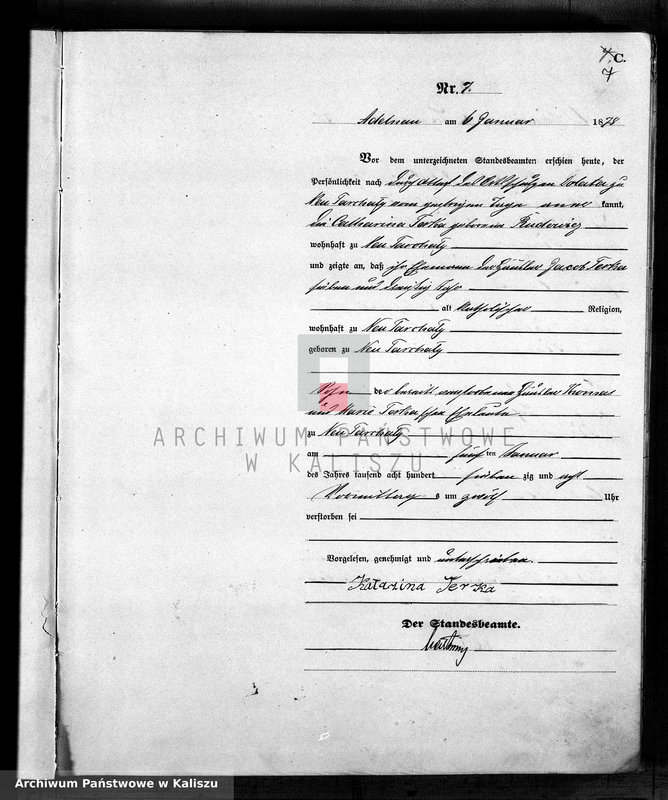 C.
7
Nr. 7.
Adelnau am 6 Januar 1878
Vor dem unterzeichneten Standesbeamten erschien heute, der
Persönlichkeit nach durch Attest des Ortsschulzen zu
Neu Tarchaly vom gestrigen Tage anno kannt,
die Catharina Terka geborene Rudowicz
wohnhaft zu Neu Tarchaly
und zeigte an, daß ihr Ehemann der Häusler Jacob Terka
sieben und dreißig Jahr
alt katholischer Religion,
wohnhaft zu Neu Tarchaly
geboren zu Neu Tarchaly
Sohn der bereits verstorbenen Häusler Thomas
und Marie Terkaschen Eheleute
zu Neu Tarchaly
am fünf ten Januar
des Jahres tausend acht hundert sieben zig und acht
Vormittags um zwölf Uhr
verstorben sei
Vorgelesen, genehmigt und unterschrieben.
Katarina Terka
Der Standesbeamte.
ARCHIWUM PAŃSTWOWE
W KALISZU
Archiwum Państwowe w Kaliszu